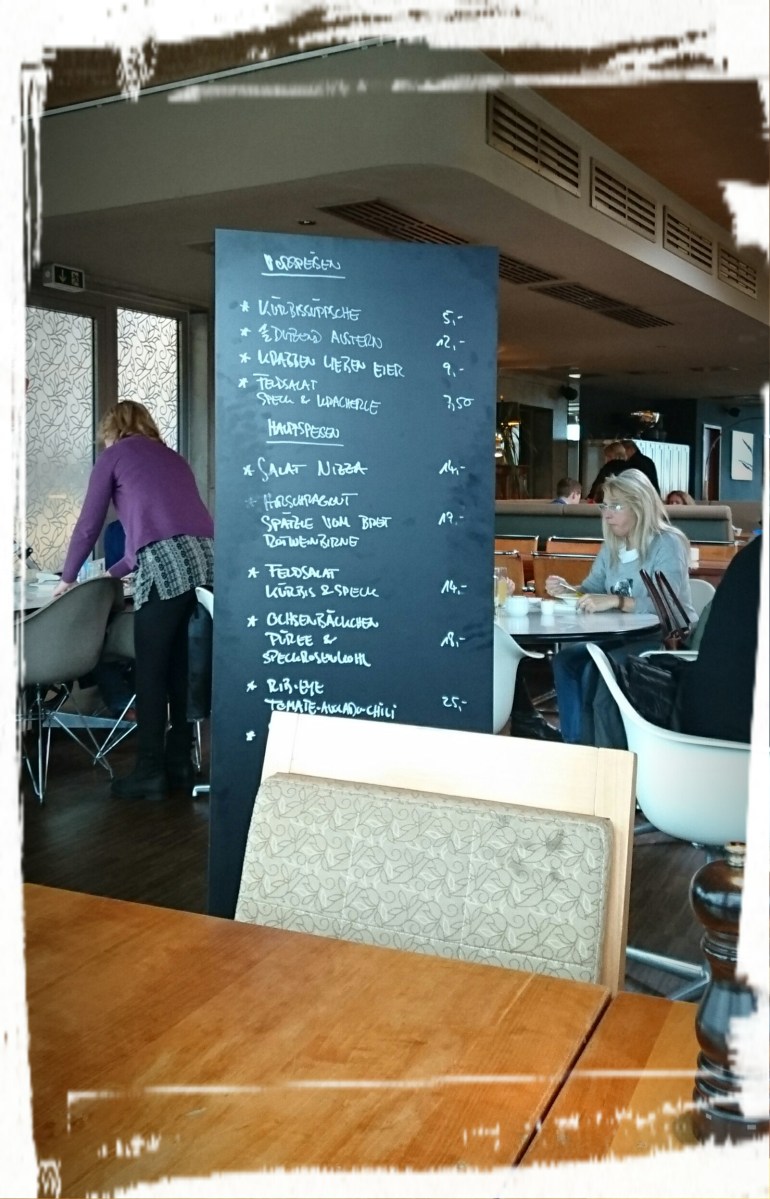 VORSPEISEN
* KÜRBISSÜPPSCHE 5,-
* ½ DUTZEND AUSTERN 12,-
* KRABBEN LIEBEN EIER 9,-
* FELDSALAT
SPECK & KRACHERLE 7,50
HAUPTSPEISEN
* SALAT NIZZA 14,-
* HIRSCHRAGOUT
SPÄTZLE VOM BRETT 19,-
ROTWEINBIRNE
* FELDSALAT
KÜRBIS & SPECK 14,-
* OCHSENBÄCKCHEN
PÜREE & 18,-
SPECKROSENKOHL
* RIB-EYE
TOMATE-AVOCADO-CHILI 25,-
*